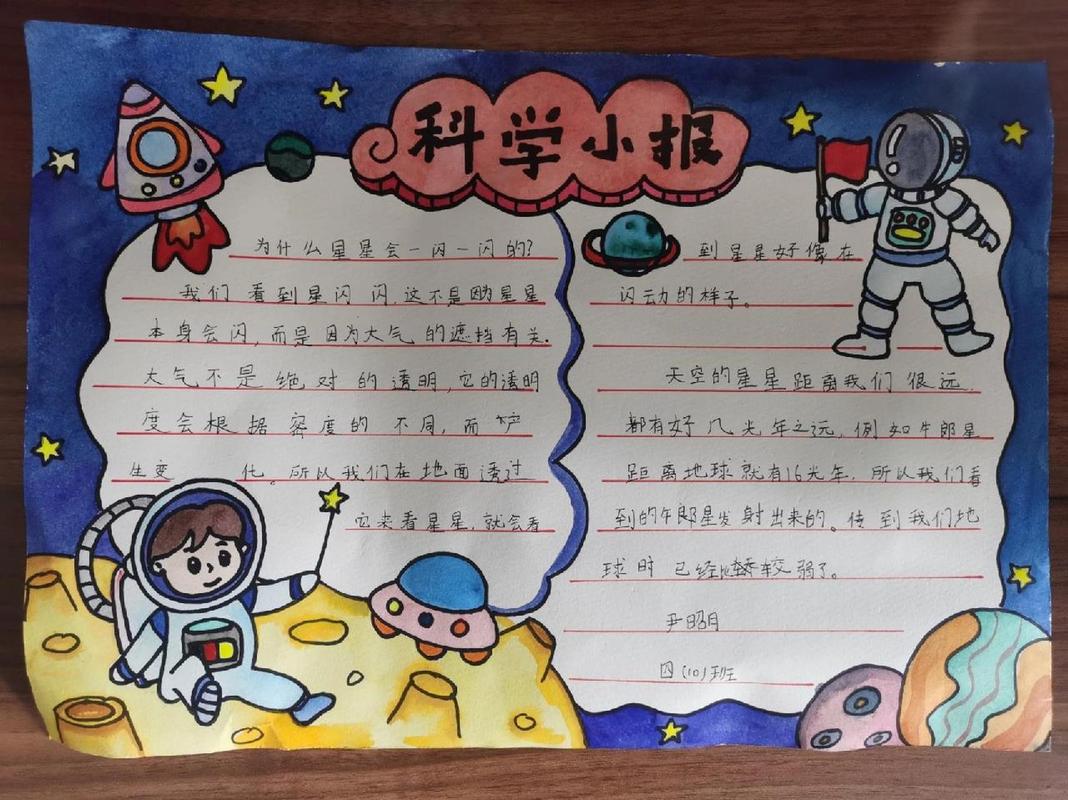 科学小报
为什么星星会一闪一闪的?
我们看到星闪闪,这不是因为星星
本身会闪,而是因为大气的遮挡有关.
大气不是绝对的透明,它的透明
度会根据密度的不同,而产
生变化。所以我们在地面透过
它来看星星,就会看
到星星好像在
闪动的样子。
天空的星星距离我们很远.
都有好几光年之远,例如牛郎星
距离地球就有16光年.所以我们看
到的牛郎星发射出来的。传到我们地
球时已经比较弱了。
尹昭月
四(10)班